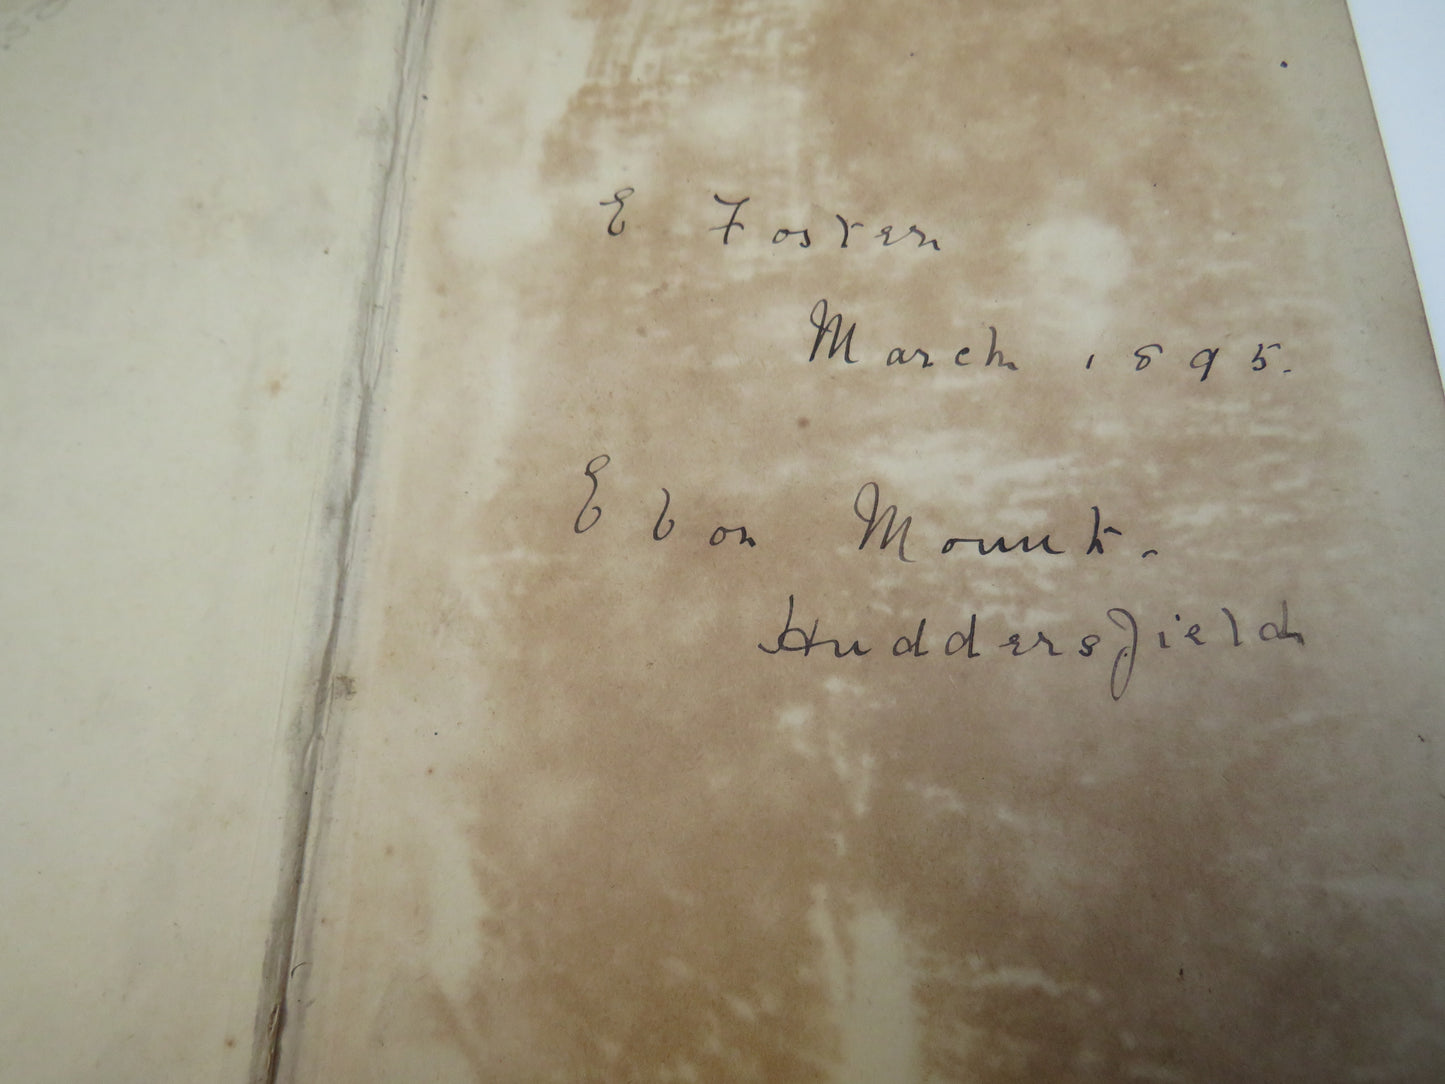 E Foster
March 1895.
Ebon Mount.
Huddersfield